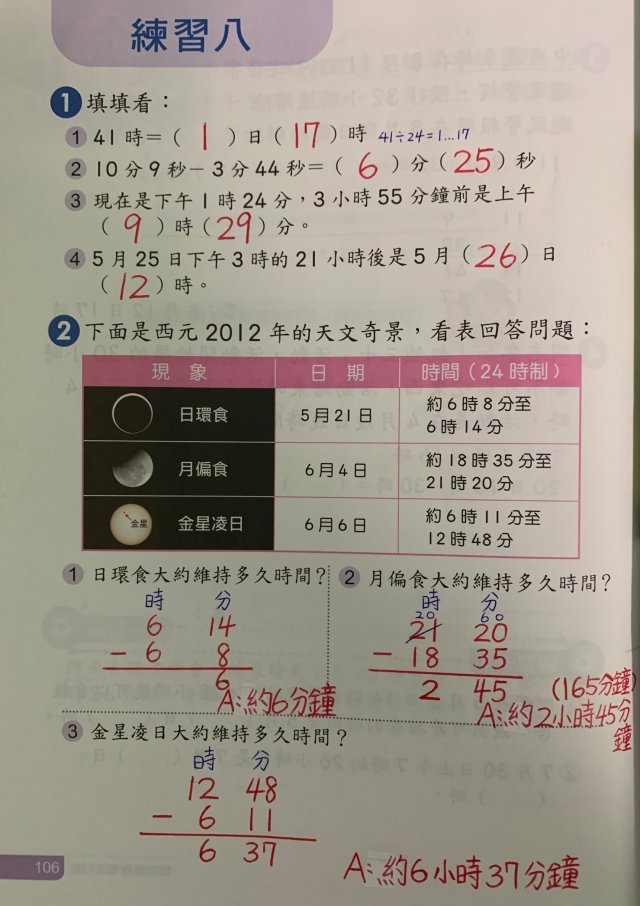 練習八
1 填填看：
1 41時=( 1 )日(17)時 41÷24=1...17
2 10分9秒-3分44秒=( 6 )分(25)秒
3 現在是下午1時24分，3小時55分鐘前是上午
( 9 )時(29)分。
4 5月25日下午3時的21小時後是5月(26)日
(12)時。
2 下面是西元2012年的天文奇景，看表回答問題：
現象 日期 時間(24時制)
日環食 5月21日 約6時8分至
6時14分
月偏食 6月4日 約18時35分至
21時20分
金星 金星凌日 6月6日 約6時11分至
12時48分
1 日環食大約維持多久時間？
時 分
6 14
- 6 8
6
A:約6分鐘
2 月偏食大約維持多久時間？
時 分
20 60
21 20
- 18 35
2 45 (165分鐘)
A:約2小時45分
鐘
3 金星凌日大約維持多久時間？
時 分
12 48
- 6 11
6 37
A:約6小時37分鐘
106